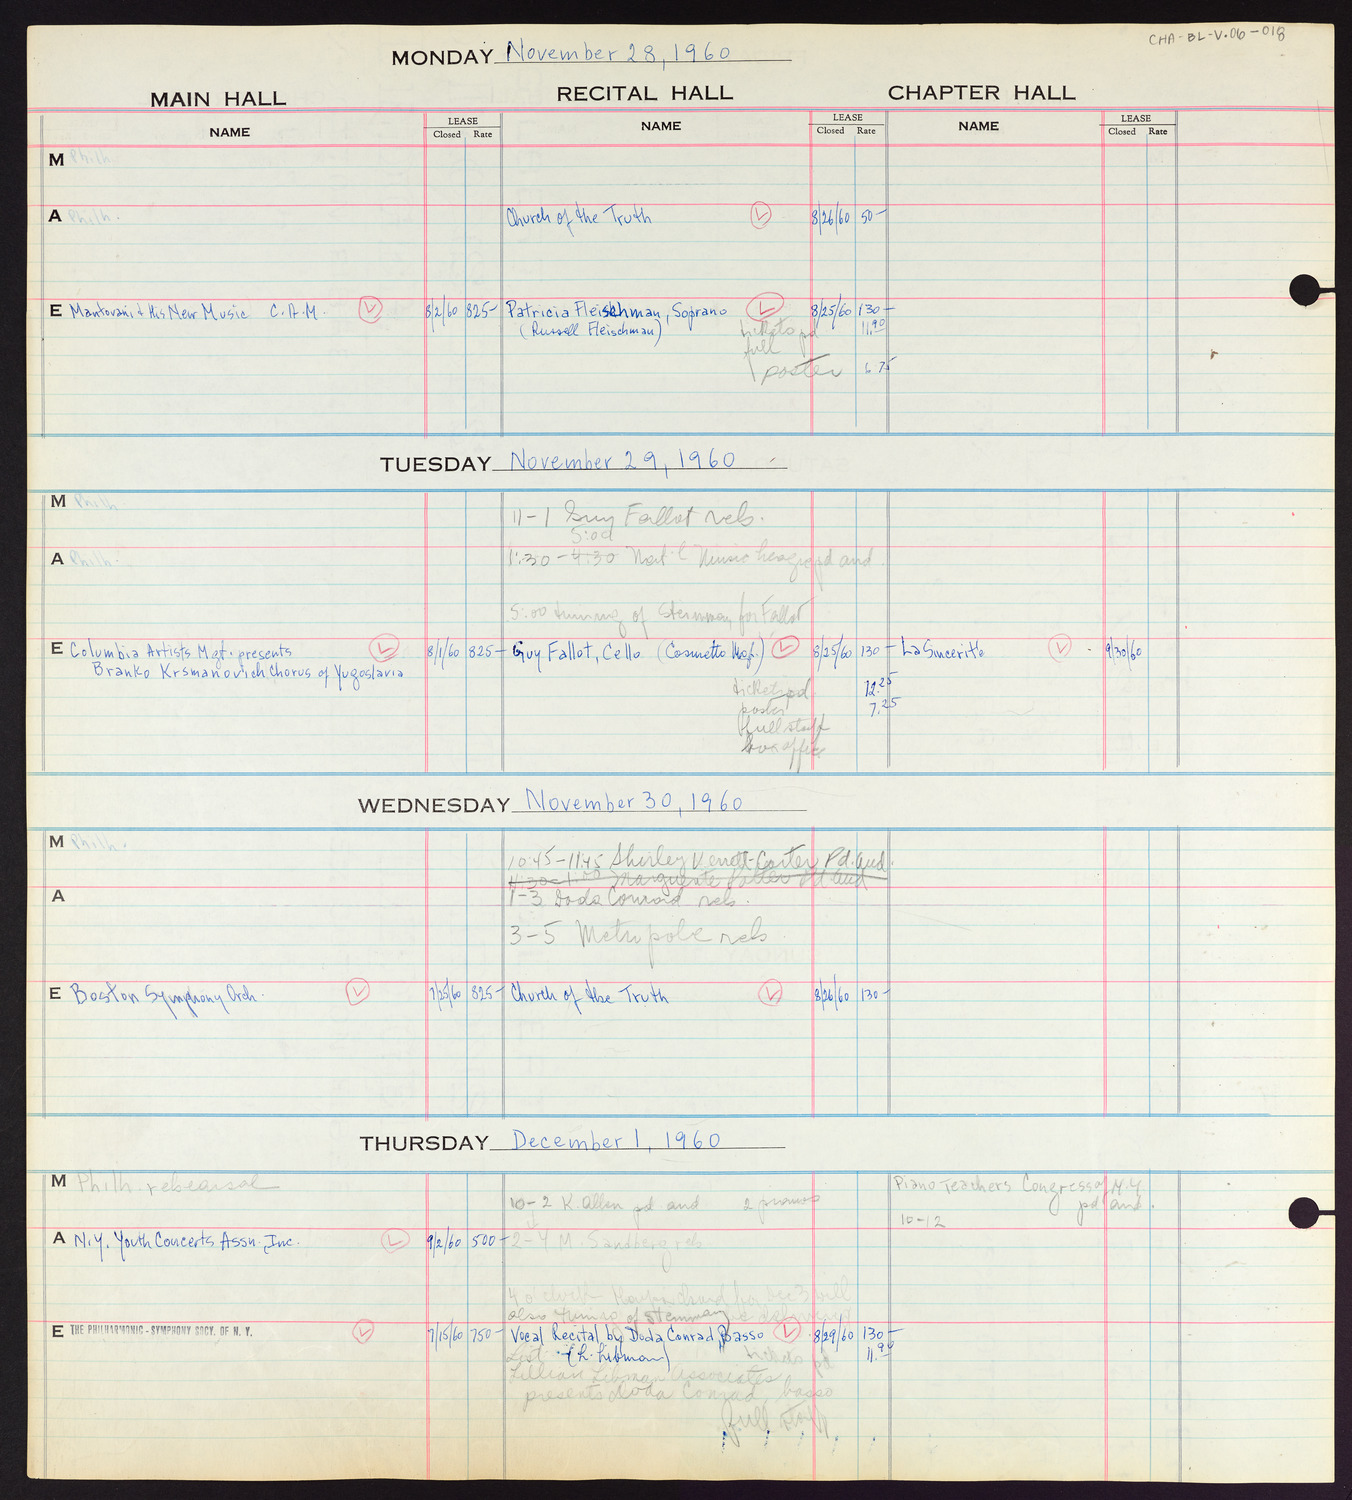 CHA-BL-V.06-018
MONDAY November 28, 1960
MAIN HALL RECITAL HALL CHAPTER HALL
NAME LEASE Closed Rate NAME LEASE Closed Rate NAME LEASE Closed Rate
M Philh.
A Philh. Church of the Truth 8/26/60 50-
E Mantovani & His New Music C.A.M. 8/2/60 825- Patricia Fleischman, Soprano 8/25/60 130-
(Russell Fleischman) tickets pd 11.90
full
poster 6 75
TUESDAY November 29, 1960
M Philh
11-1 Guy Fallot rels.
5:00
A Philh. 1:30-4:30 Nat'l Music pd aud.
5:00 tuning of Steinway for Fallot
E Columbia Artists Mgt. presents 8/1/60 825- Guy Fallot, Cello (Cosmetto Mgt.) 8/25/60 130- La Sincerite 9/30/60
Branko Krsmanovich Chorus of Yugoslavia
tickets pd. 12.25
poster 7.25
full staff
box office
WEDNESDAY November 30, 1960
M Philh.
10:45-11:45 Shirley Verrett-Carter Pd. aud.
11:30-1:00 Marguerite Pd aud
A 1-3 Doda Conrad rels.
3-5 Metropole rels
E Boston Symphony Orch. 7/25/60 825- Church of the Truth 8/26/60 130-
THURSDAY December 1, 1960
M Philh. rehearsal Piano Teachers Congress of N.Y.
10-2 K. Allen pd aud 2 pianos pd aud.
10-12
A N.Y. Youth Concerts Assn. Inc. 9/2/60 500- 2-4 M. Sandberg rels
4 o'clock for Dec 3 will
also tuning of Steinway
E THE PHILHARMONIC-SYMPHONY SOCY. OF N. Y. 7/15/60 750- Vocal Recital by Doda Conrad, Basso 8/29/60 130-
List (L. Libman) tickets pd 11.90
Lillian Libman Associates
presents Doda Conrad, basso
full staff